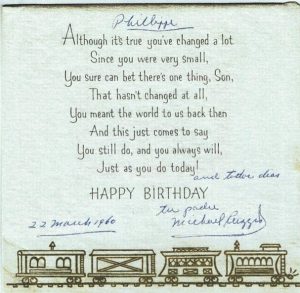 Phillippe
Although it's true you've changed a lot
Since you were very small,
You sure can bet there's one thing, Son,
That hasn't changed at all,
You meant the world to us back then
And this just comes to say
You still do, and you always will,
Just as you do today!
and todos dias
HAPPY BIRTHDAY
tu padre
22 March 1960
Michael